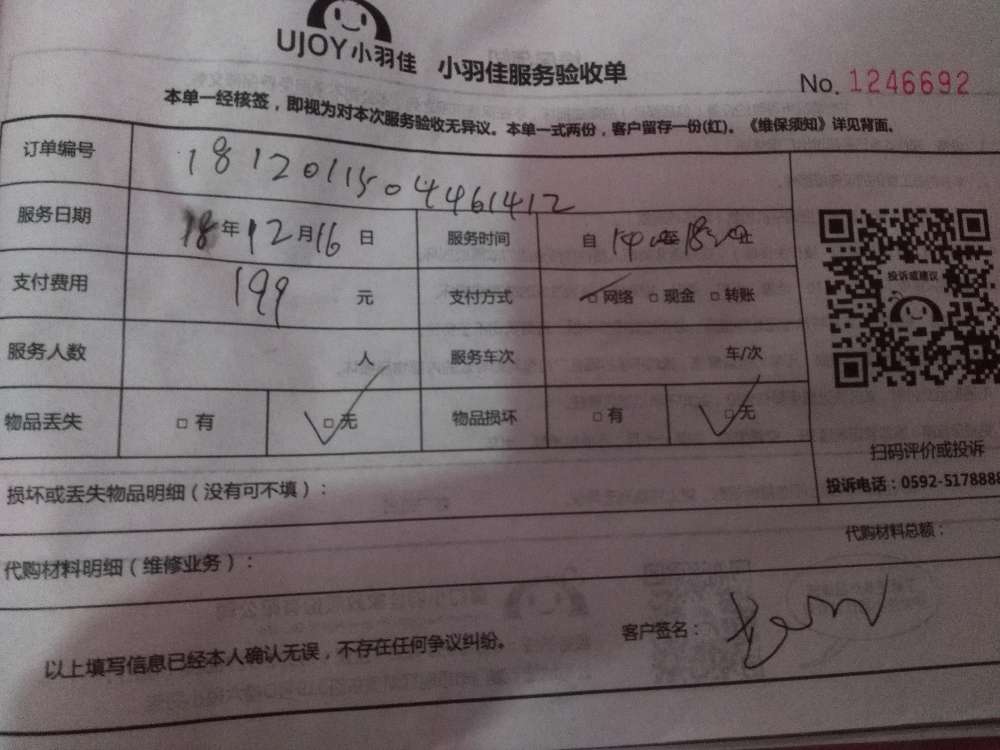 UJOY小羽佳 小羽佳服务验收单
No. 1246692
本单一经核签，即视为对本次服务验收无异议。本单一式两份，客户留存一份(红)。《维保须知》详见背面。
订单编号 1812011504461412
服务日期 18年12月16日 服务时间 自 至 止
支付费用 199 元 支付方式 □网络 □现金 □转账
服务人数 人 服务车次 车/次
物品丢失 □有 □无 物品损坏 □有 □无
投诉或建议
扫码评价或投诉
投诉电话：0592-5178888
损坏或丢失物品明细（没有可不填）：
代购材料明细（维修业务）： 代购材料总额：
以上填写信息已经本人确认无误，不存在任何争议纠纷。 客户签名：